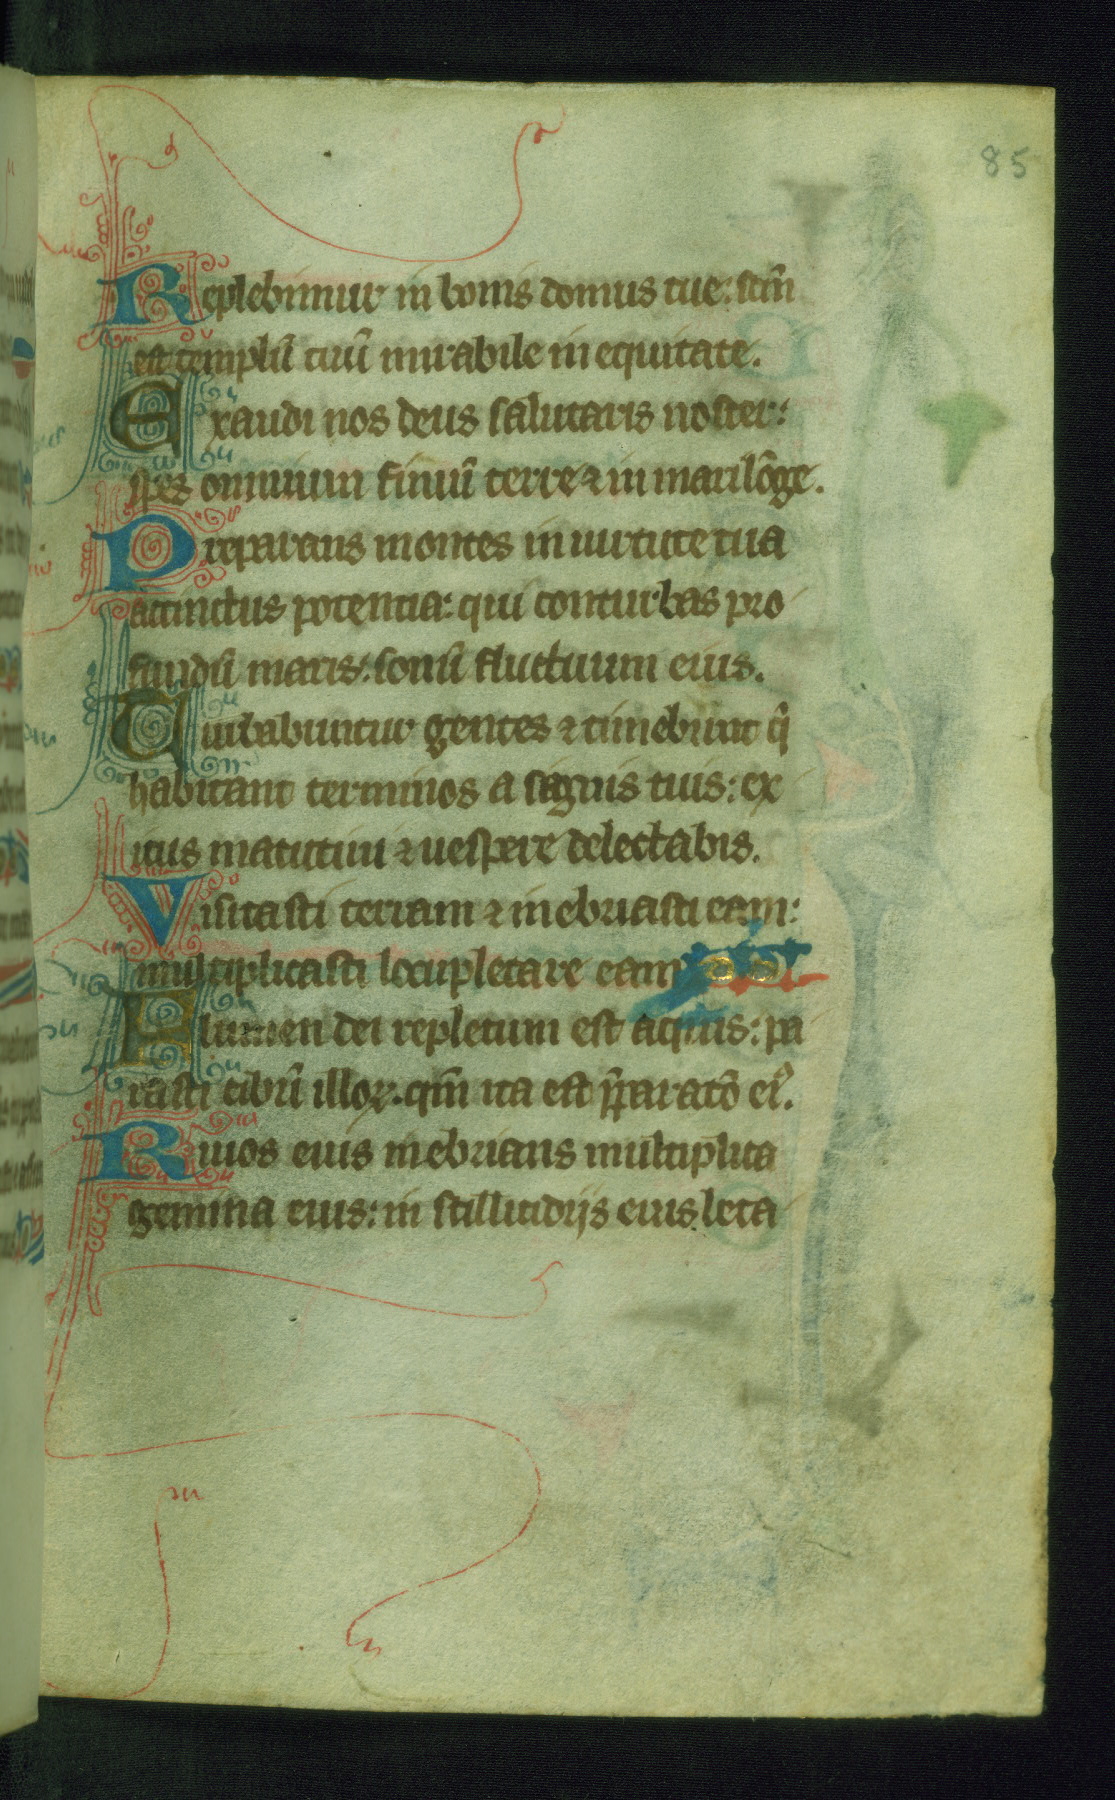 85
Replebimur in bonis domus tue: scm̄
est templū tuū mirabile in equitate.
Exaudi nos deus salutaris noster:
spes omnium finiū terre ⁊ in mari lōge.
Preparans montes in uirtute tua
accinctus potentia: qui conturbas pro
fundū maris: sonū fluctuum eius.
Turbabuntur gentes ⁊ timebunt q̄
habitant terminos a signis tuis: ex
itus matutini ⁊ uespere delectabis.
Visitasti terram ⁊ inebriasti eam:
multiplicasti locupletare eam
Flumen dei repletum est aquis: pa
rasti cibū illoꝝ. qm̄ ita est p̄paratō ei᷒.
Riuos eius inebrians multiplica
gemina eius: in stillicidijs eius leta